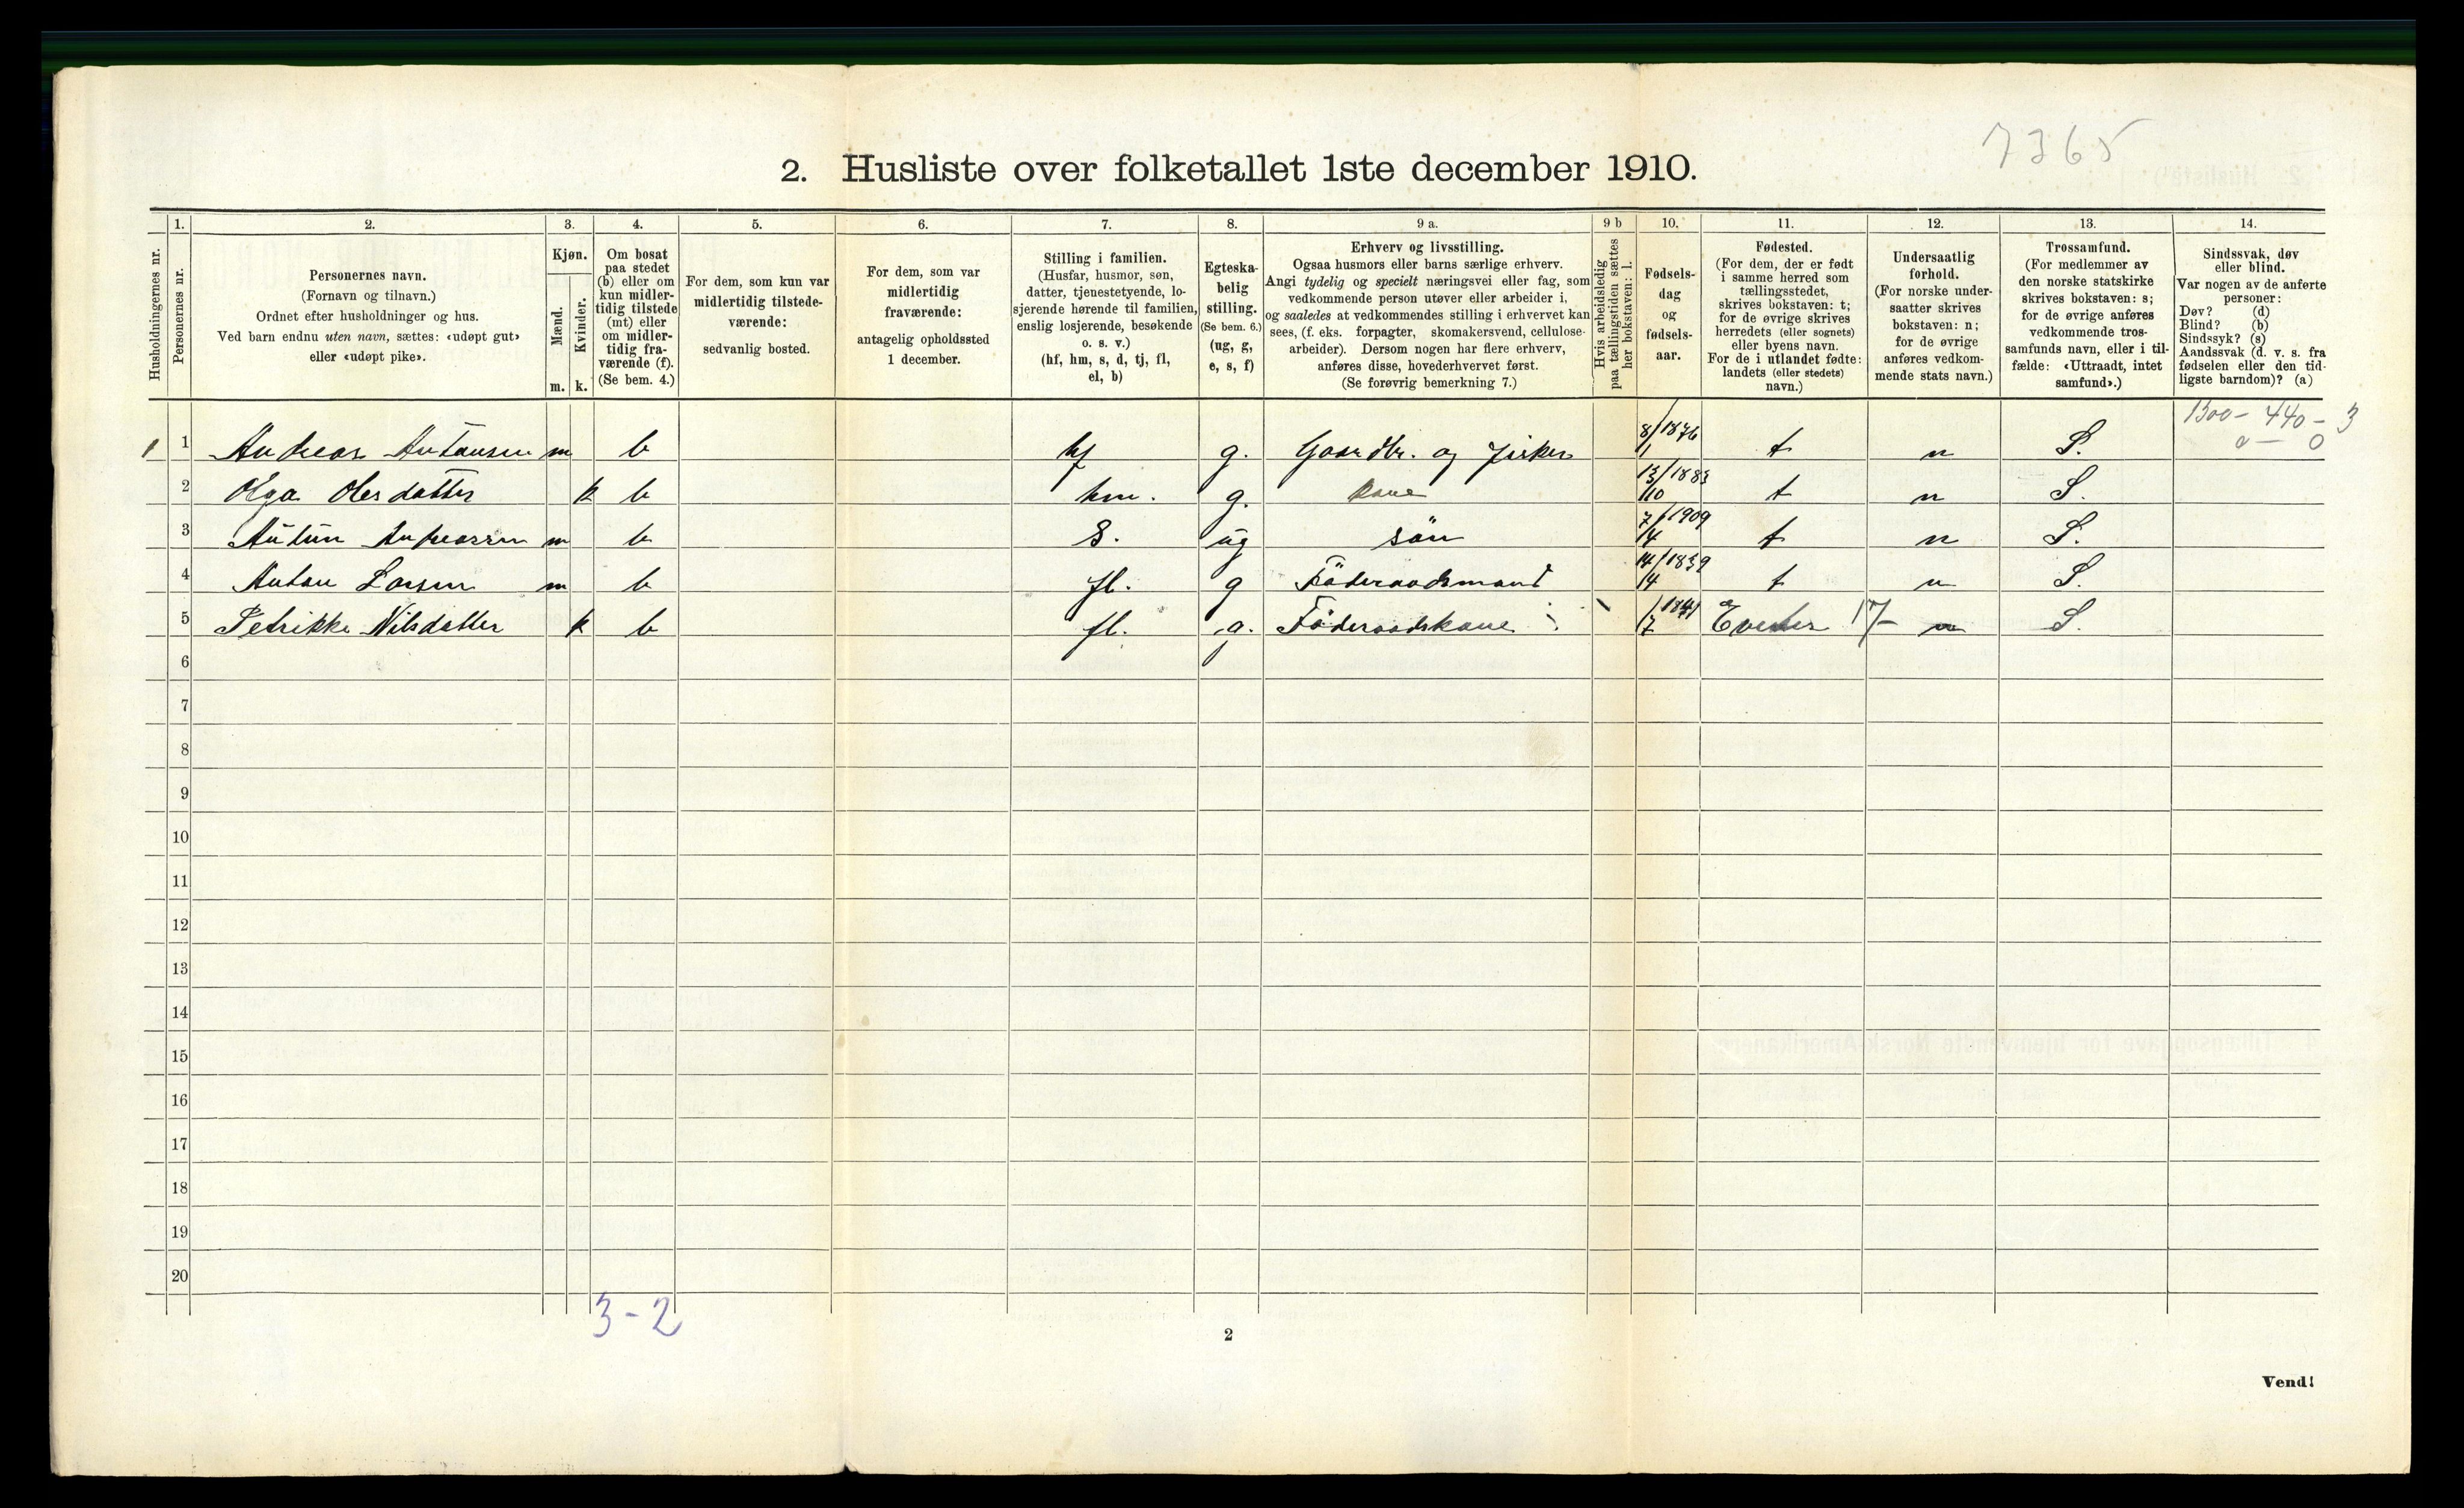 7365
2. Husliste over folketallet 1ste december 1910.
Husholdningernes nr.
1.
Personernes nr.
2.
Personernes navn.
(Fornavn og tilnavn.)
Ordnet efter husholdninger og hus.
Ved barn endnu uten navn, sættes: «udøpt gut»
eller «udøpt pike».
3.
Kjøn.
Mænd.
m.
Kvinder.
k.
4.
Om bosat
paa stedet
(b) eller om
kun midler-
tidig tilstede
(mt) eller
om midler-
tidig fra-
værende (f).
(Se bem. 4.)
5.
For dem, som kun var
midlertidig tilstede-
værende:
sedvanlig bosted.
6.
For dem, som var
midlertidig
fraværende:
antagelig opholdssted
1 december.
7.
Stilling i familien.
(Husfar, husmor, søn,
datter, tjenestetyende, lo-
sjerende hørende til familien,
enslig losjerende, besøkende
o. s. v.)
(hf, hm, s, d, tj, fl,
el, b)
8.
Egteska-
belig
stilling.
(Se bem. 6.)
(ug, g,
e, s, f)
9 a.
Erhverv og livsstilling.
Ogsaa husmors eller barns særlige erhverv.
Angi tydelig og specielt næringsvei eller fag, som
vedkommende person utøver eller arbeider i,
og saaledes at vedkommendes stilling i erhvervet kan
sees, (f. eks. forpagter, skomakersvend, cellulose-
arbeider). Dersom nogen har flere erhverv,
anføres disse, hovederhvervet først.
(Se forøvrig bemerkning 7.)
9 b
Hvis arbeidsledig
paa tællingstiden sættes
her bokstaven: l.
10.
Fødsels-
dag
og
fødsels-
aar.
11.
Fødested.
(For dem, der er født
i samme herred som
tællingsstedet,
skrives bokstaven: t;
for de øvrige skrives
herredets (eller sognets)
eller byens navn.
For de i utlandet fødte:
landets (eller stedets)
navn.)
12.
Undersaatlig
forhold.
(For norske under-
saatter skrives
bokstaven: n;
for de øvrige
anføres vedkom-
mende stats navn.)
13.
Trossamfund.
(For medlemmer av
den norske statskirke
skrives bokstaven: s;
for de øvrige anføres
vedkommende tros-
samfunds navn, eller i til-
fælde: «Uttraadt, intet
samfund».)
14.
Sindssvak, døv
eller blind.
Var nogen av de anførte
personer:
Døv? (d)
Blind? (b)
Sindssyk? (s)
Aandssvak (d. v. s. fra
fødselen eller den tid-
ligste barndom)? (a)
1300 - 440 - 3
0 - 0
1 1 Andreas Antonsen m b hf g. Gaardbr. og fisker 8/1 1876 t n S.
2 Olga Olesdatter k b hm. g. kone 13/10 1883 t n S.
3 Anton Andreassen m b s. ug sön 7/4 1909 t n S.
4 Anton Larsen m b fl. g Föderaadsmand 14/4 1839 t n S.
5 Petrikke Nilsdatter k b fl. g. Föderaadskone 1/7 1841 Evenes 17- n S.
6
7
8
9
10
11
12
13
14
15
16
17
18
19
20
3-2
2
Vend!